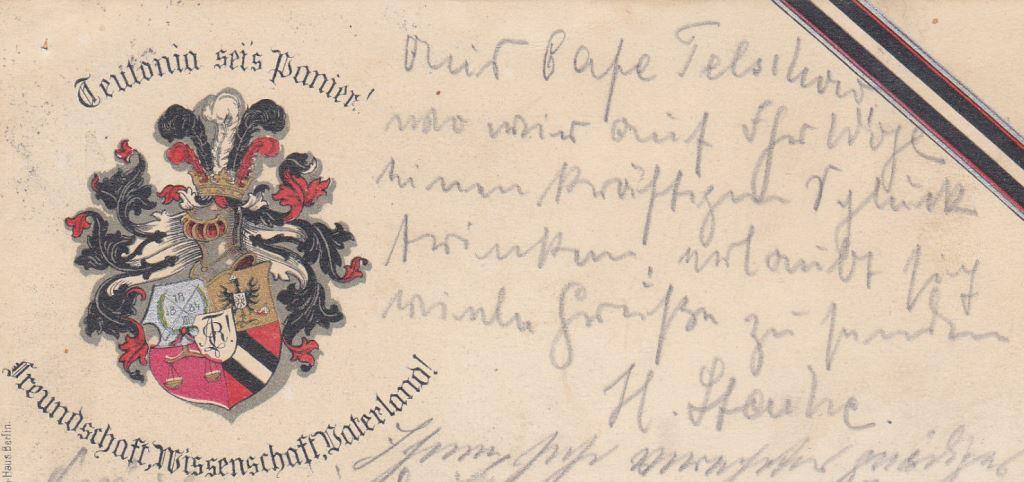 Teutonia sei's Panier!
Freundschaft, Wissenschaft, Vaterland!
Haus Berlin.
Aus Cafe Telschow,
wo wir auf Ihr Wohl
einen kräftigen Schluck
trinken, erlaubt sich
viele Grüße zu senden
H.